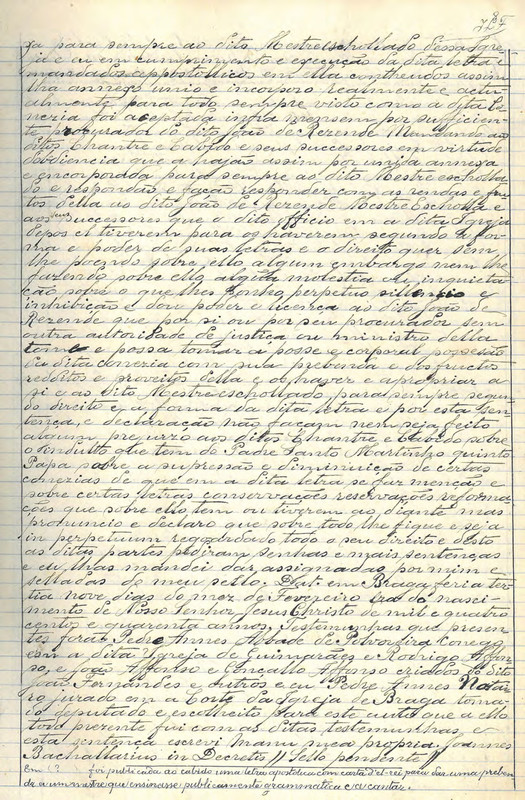 ja para sempre ao dito Mestreschollado dessa Igre
ja e eu em cumprimento e execução da dita letra e
mandados appostolicos em ella contheudos assim
lha annego unio e incorporo realmente e actu-
almente para todo sempre visto como a dita Co
nezia foi aceptada infra mensem por sufficien-
te procurador do dito João de Rezende Mandando aos
ditos Chantre e Cabido e seus successores em virtude
dobdiencia que a hajão assim por unida annexa
e encorporada para sempre ao dito Mestre eschola
do e respondão e fação responder com as rendas e fru
tos della ao dito João de Rezende Mestre Eschola e
aos seus successores que o dito officio em a dita Igreja
depos el tiverem para os haverem segundo a for-
ma e poder de suas letras e o direito quer sem
lhe poendo sobre ello algum embargo nem lhe
fazendo sobre ello alguma molestia ou inquieta
ção sobre o que lhes ponho perpetuo silencio e
inhibição e dou poder e licença ao dito João de
Rezende que por si ou por seu procurador sem
outra autoridade de justiça ou ministro della
tome e possa tomar a posse e corporal possessão
da dita conezia com sua prebenda e dos fructos
redditos e proveitos della e os haver e apropriar a
si e ao dito Mestreeschollado para sempre segun-
do direito e a forma da dita letra e por esta Sen-
tença, e declaração não façam nem seja feito
algum prejuizo aos ditos Chantre e Cabido sobre
o Indulto que tem do Padre Santo Martinho quinto
Papa sobre a supressão e diminuição de certas
conezias de que em a dita letra se faz menção e
sobre certas letras conservações reservações reforma
ções que sobre ello tem ou tiverem ao diante mas
pronuncio e declaro que sobre todo lhe fique e seja
in perpetuum reguardado todo o seu direito e desto
as ditas partes pediram senhas e mais sentenças
e eu lhas mandei dar assignadas por mim e
selladas de meu sello. Dat. em Braga feria ter-
tia nove dias do mez de Fevereiro era do nasci-
mento de Nosso Senhor Jesus Christo de mil e quatro
centos e quarenta annos. Testemunhas que presen-
tes forão Pedro Annes Abbade de Polvoreira Conego
em a dita Igreja de Guimarães e Rodrigo Affon
so, e João Affonso e Goncallo Affonso criados do dito
João Fernandes e outros e eu Pedre Annes Notai
ro jurado em a Corte da Igreja de Braga toma-
do deputado e escolheito para este auto que a ello
todo prezente fui com as ditas testemunhas e
esta sentença escrevi manu mea propria. Joannes
Bachallarius in Decretis // Sello pendente //
Em (? foi publicada ao cabido uma letra apostolica com carta d'el-rei para dar uma preben
da a um mestre que ensinasse publicamente grammatica e a cantar.